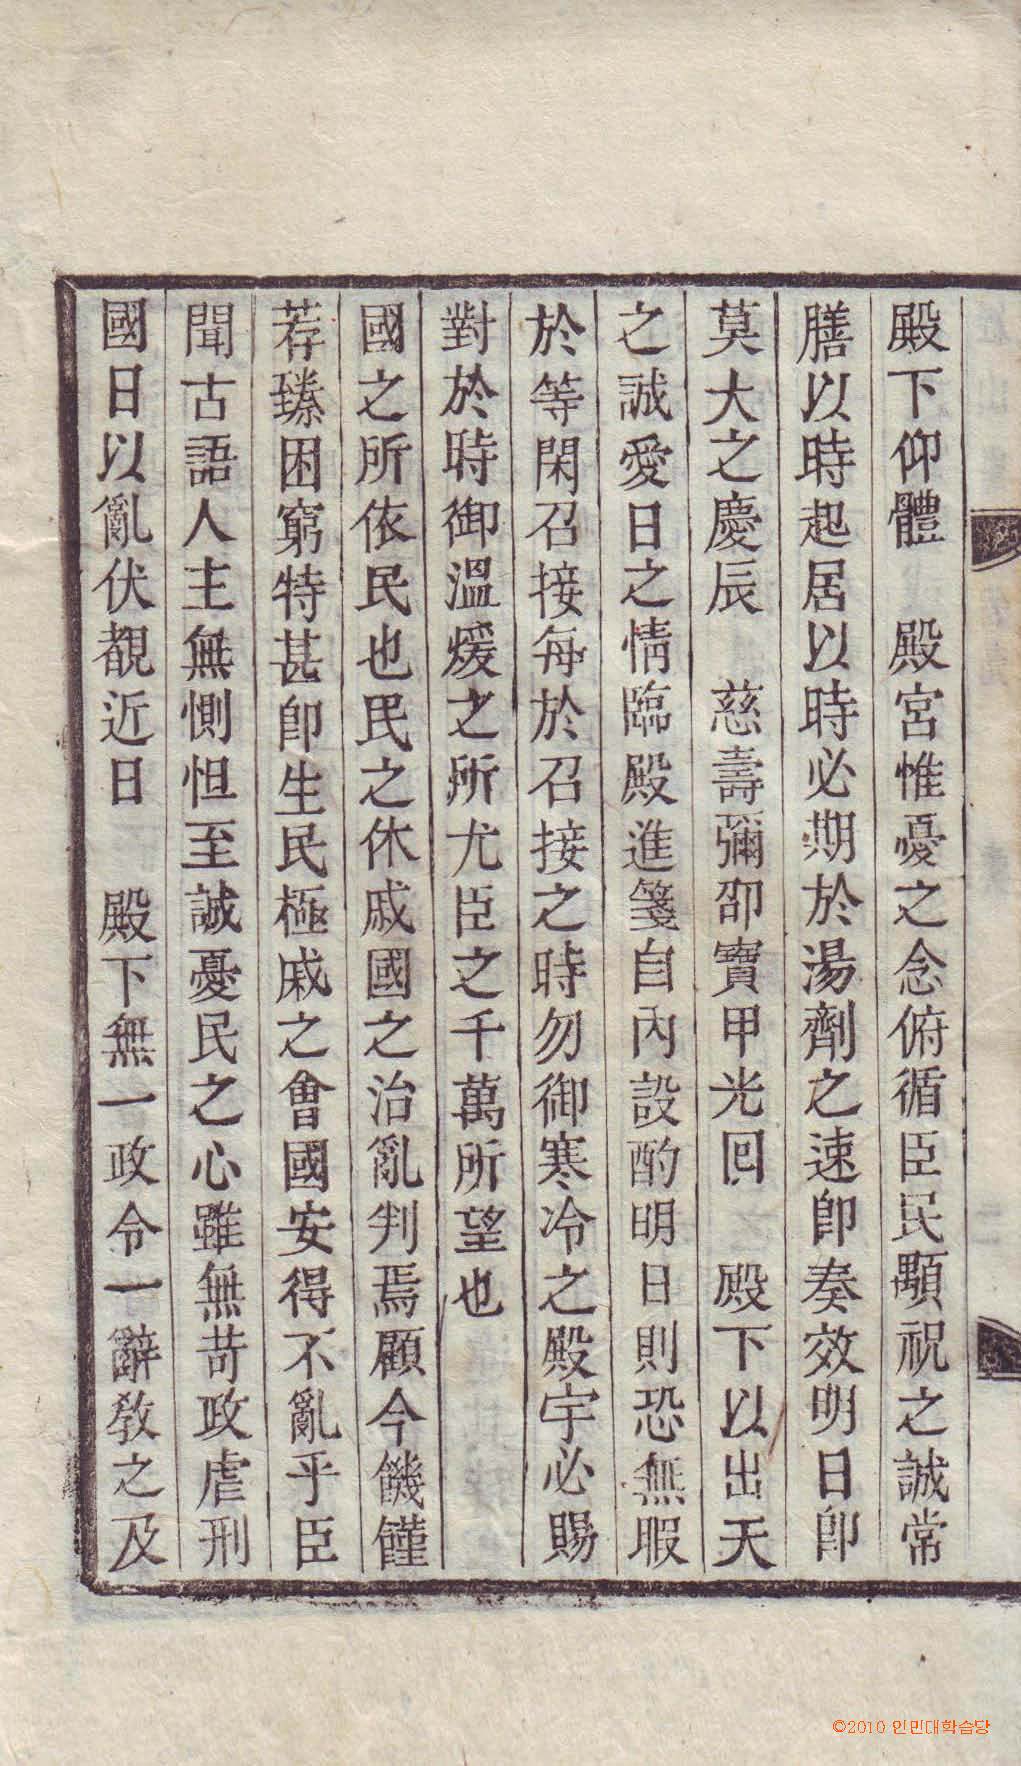 殿下仰體　殿宮惟憂之念俯循臣民顒祝之誠常
膳以時起居以時必期於湯劑之速卽奏效明日卽
莫大之慶辰　慈壽彌卲寶甲光回　殿下以出天
之誠愛日之情臨殿進箋自內設酌明日則恐無暇
於等閑召接每於召接之時勿御寒冷之殿宇必賜
對於時御溫煖之所尤臣之千萬所望也
國之所依民也民之休戚國之治亂判焉顧今饑饉
荐臻困窮特甚卽生民極戚之會國安得不亂乎臣
聞古語人主無惻怛至誠憂民之心雖無苛政虐刑
國日以亂伏覩近日　殿下無一政令一辭敎之及
©2010 인민대학습당